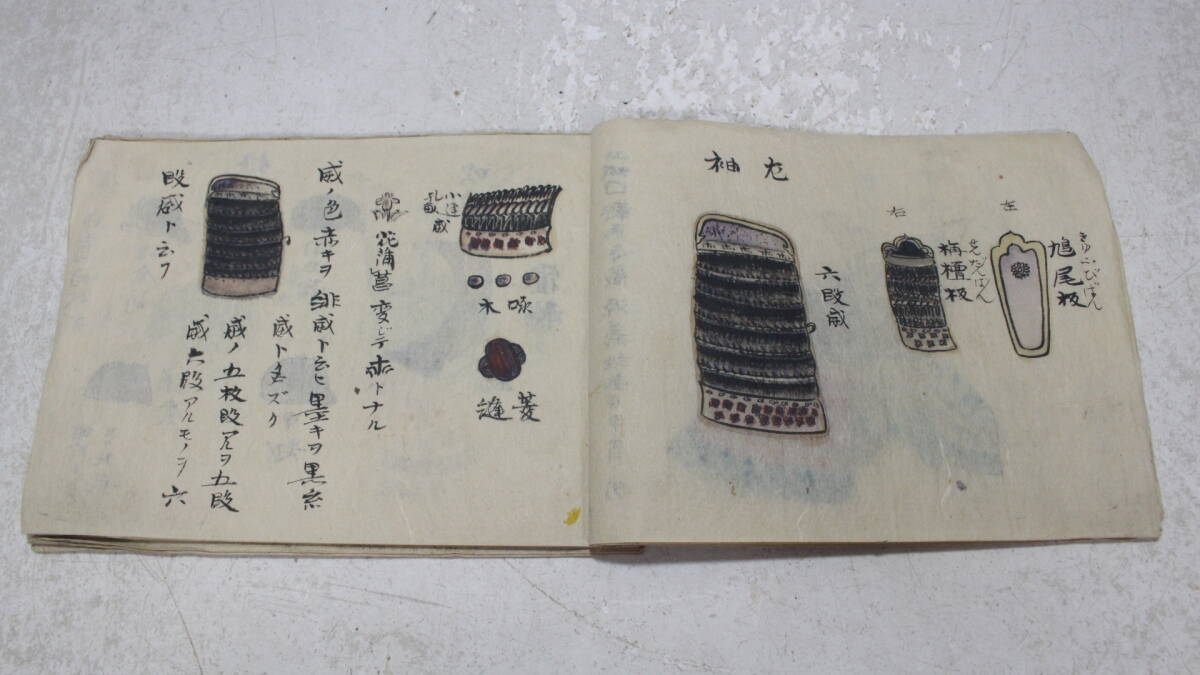 左
鳩尾板
きゅうびばん
右
栴檀板
せんだんばん
左袖
六段威
小逆
乱威
木啄
菱縫
花菖蒲変ジテ赤トナル
威ノ色赤キヲ緋威ト云ヒ黒キヲ黒糸
威ト名ヅク
威ノ五枚段アルヲ五段
威六段アルモノヲ六
段威ト云フ